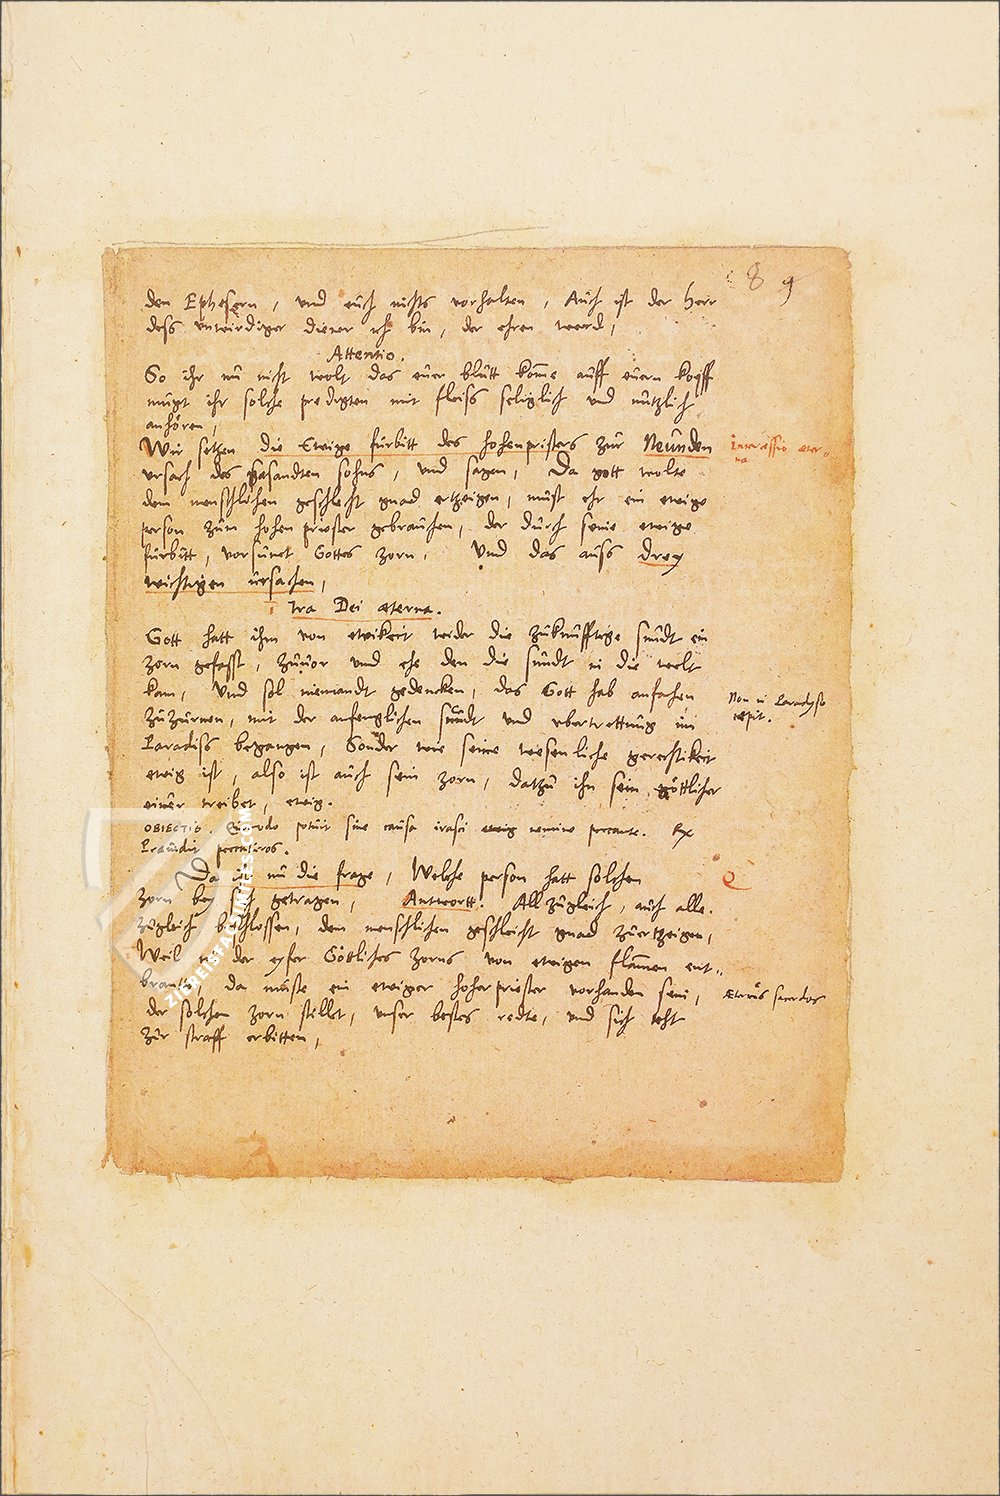 8 9
den Ephesern, und euch nichts vorhalten, Auch ist der Herr
dess unwirdiger diener ich bin, der ehren werd,
Attentio.
So ihr nu nicht wolt das euer blutt komme auff euern kopff
mugt ihr solche predigten mit fleiss seliglich und nutzlich
anhören,
Wir setzen die Ewige furbitt des hohenpristers zur Neunden
ursach des gesandten sohns, und sagen, Da gott wolte
dem menschlichen geschlecht gnad ertzeigen, must ehr ein ewige
person zum hohen priester gebrauchen, der durch seine ewige
furbitt, vorsunet Gottes zorn, Und das auss drey
wichtigen ursachen,
Ira Dei æterna.
Gott hatt ihm von ewikeit wider die zukunfftige sundt ein
zorn gefasst, zuuor und ehe den die sundt in die welt
kam, Und sol niemandt gedencken, das Gott hab anfahen
zuzurnen, mit der anfenglichen sundt und ubertrettung im
Paradiss begangen, Sonder wie seine wesenliche gerechtikeit
ewig ist, also ist auch sein zorn, datzu ihn sein göttlicher
eiuer treibet, ewig.
OBIECTIO. Quomodo potuit sine causa irasci ewig nemine peccante. Rx
Praeuidit peccaturos.
Da ist nu die frage, Welche person hatt solchen
zorn bey sich getragen, Antwortt. All zugleich, auch alle
zugleich beschlossen, dem menschlichen geschlecht gnad zuertzeigen,
Weil nu der eyfer Göttliches zorns von ewigen flammen ent-
brante, da muste ein ewiger hoher priester vorhanden sein,
der solchen zorn stillet, unser bestes redte, und sich liht
zur straff erbitten,
Intercessio æter-
na
Non in Paradyso
cœpit.
Æternus sacerdos
ZIEREISFACSIMILES.COM